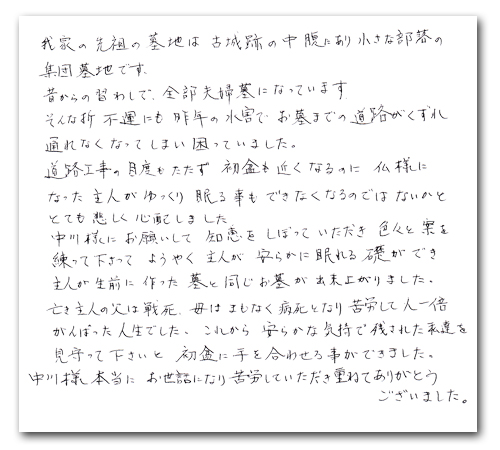 我家の先祖の墓地は古城跡の中腹にあり小さな部落の
集団墓地です.
昔からの習わしで、全部夫婦墓になっています.
そんな折 不運にも昨年の水害で お墓までの道路がくずれ
通れなくなってしまい困っていました。
道路工事の目度もたたず 初盆も近くなるのに 仏様に
なった主人がゆっくり眠る事もできなくなるのではないかと
とても悲しく心配しました.
中川様にお願いして 知恵をしぼっていただき 色々と案を
練って下さって ようやく主人が 安らかに眠れる礎ができ
主人が生前に作った墓と同じお墓が出来上がりました。
亡き主人の父は戦死、母はまもなく病死となり苦労して人一倍
がんばった人生でした、これから 安らかな気持で残された私達を
見守って下さいと 初盆に手を合わせる事ができました。
中川様本当に お世話になり苦労していただき重ねてありがとう
ございました。